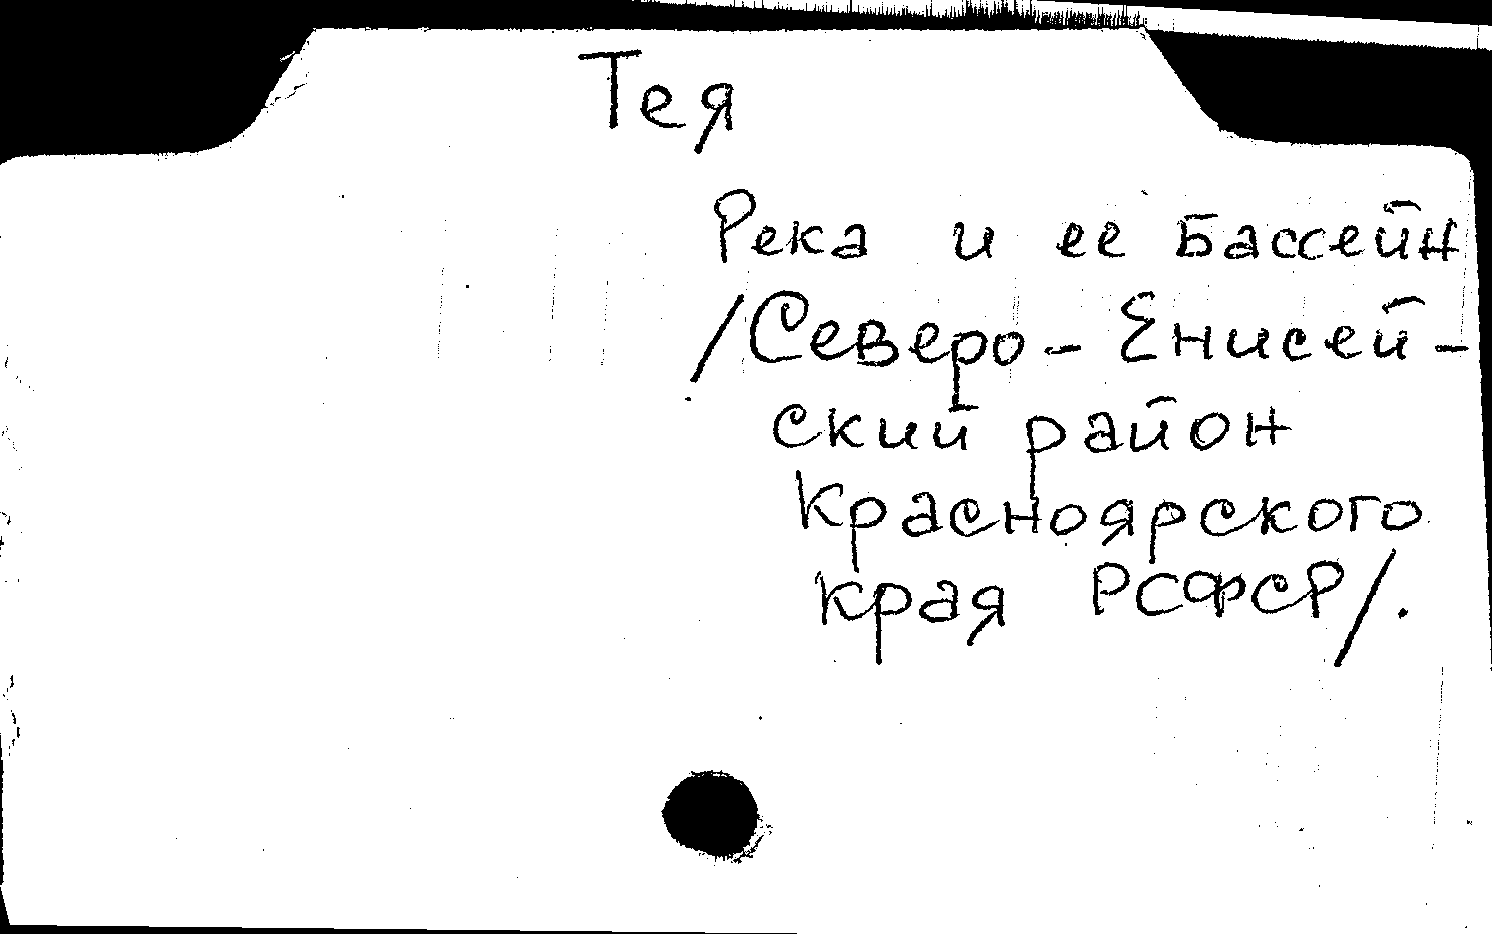 Тея
Река и ее бассейн
/Северо-Енисей-
ский район
Красноярского
края РСФСР/.